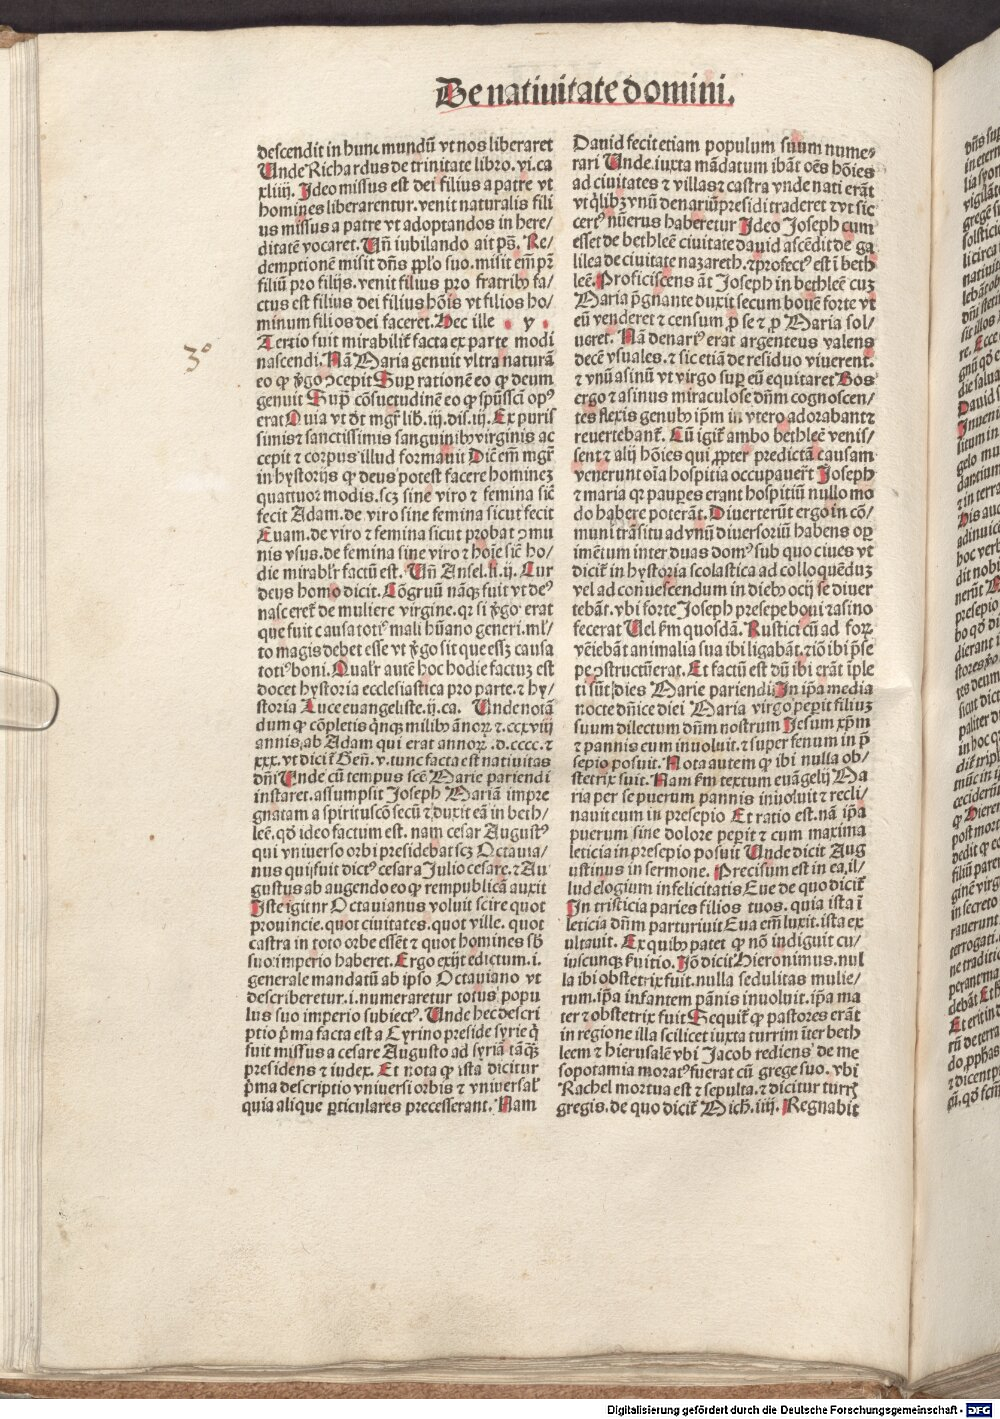 De natiuitate domini.
descendit in hunc mundū vt nos liberaret
Unde Richardus de trinitate libro. vi. ca
xliiij. Ideo missus est dei filius a patre vt
homines liberarentur. venit naturalis fili
us missus a patre vt adoptandos in here/
ditatē vocaret. Uñ iubilando ait pš. Re/
demptionē misit dñs pplo suo. misit em̄ pr̄
filiū pro filijs. venit filius pro fratribꝯ fa/
ctus est filius dei filius hoīs vt filios ho/
minum filios dei faceret. Hec ille
Tertio fuit mirabilit̄ facta ex parte modi
3°
nascendi. Nā Maria genuit vltra naturā
eo ꝙ ꝟgo ↄcepit Suꝑ rationē eo ꝙ deum
genuit Suꝑ cōsuetudinē eo ꝙ spūssc̄ī opꝰ
erat Quia vt dt̄ mgr̄ lib. iij. dis. iij. Ex puris
simis ⁊ sanctissimis sanguinibꝯ virginis ac
cepit ⁊ corpus illud formauit Dic̄ em̄ mgr̄
in hystorijs ꝙ deus potest facere hominez
quattuor modis. scꝫ sine viro ⁊ femina sic̄
fecit Adam. de viro sine femina sicut fecit
Euam. de viro ⁊ femina sicut probat ↄmu
nis vsus. de femina sine viro ⁊ hoīe sic̄ ho/
die mirabl'r factū est. Uñ Ansel. li. ij. Cur
deus homo dicit. Cōgruū nāqꝫ fuit vt de⁹
nascereť de muliere virgine. qr si ꝟgo erat
que fuit causa toti⁹ mali hūano generi. ml'/
to magis debet esse vt ꝟgo sit que essꝫ causa
toti⁹ boni. Qual'r autē hoc hodie factuꝫ est
docet hystoria ecclesiastica pro parte. ⁊ hy/
storia Luce euangeliste. ij. ca. Unde notā
dum ꝙ cōpletis qīnqꝫ milibꝯ ānorꝝ ⁊ ccxviij
annis, ab Adam qui erat annorꝝ .d.cccc. ⁊
xxx. vt dicit̄ Geñ. v. tunc facta est natiuitas
dñi Unde cū tempus sc̄e Marie pariendi
instaret. assumpsit Joseph Mariā impre
gnatam a spiritusc̄o secū ⁊ duxit eā in beth/
leē. qđ ideo factum est. nam cesar Augustꝰ
qui vniuerso orbi presidebat scꝫ Octauia/
nus qui fuit dictꝰ cesar a Julio cesare. ⁊ Au
gustus ab augendo eo ꝙ rempublicā auxit
Iste igitnr Octauianus voluit scire quot
prouincie. quot ciuitates. quot ville. quot
castra in toto orbe essēt ⁊ quot homines sb̄
suo imperio haberet. Ergo exijt edictum. i.
generale mandatū ab ipso Octauiano vt
describeretur. i. numeraretur totus popu
lus suo imperio subiectꝰ. Unde hec descri
ptio pͥma facta est a Cyrino preside syrie qͥ
fuit missus a cesare Augusto ad syriā tāqꝫ
presidens ⁊ iudex. Et nota ꝙ ista dicitur
pͥma descriptio vniuersi orbis ⁊ vniuersal'
quia alique ꝑticulares precesserant. Nam
Dauid fecit etiam populum suum nume/
rari Unde iuxta mādatum ibāt oēs hoīes
ad ciuitates ⁊ villas ⁊ castra vnde nati erāt
vt qͥlibꝫ vnū denariū presidi traderet ⁊ vt sic
certꝰ nūerus haberetur Ideo Joseph cum
esset de bethleē ciuitate dauid ascēdit de ga
lilea de ciuitate nazareth. ⁊ profectꝰ est ī beth
leē. Proficiscens āt Joseph in bethleē cuꝫ
Maria p̄gnante duxit secum bouē forte vt
eū venderet ⁊ censum ꝓ se ⁊ ꝓ Maria sol/
ueret. Nā denariꝰ erat argenteus valens
decē vsuales. ⁊ sic etiā de residuo viuerent.
⁊ vnū asinū vt virgo suꝑ eū equitaret Bos
ergo ⁊ asinus miraculose dñm cognoscen/
tes flexis genubꝯ ipm̄ in vtero adorabant ⁊
reuertebanť. Cū igit̄ ambo bethleē venis/
sent ⁊ alij hoīes qui ꝓpter predictā causam
venerunt oīa hospitia occupauer̄t Joseph
⁊ maria qr pauꝑes erant hospitiū nullo mo
do habere poterāt. Diuerterūt ergo in cō/
muni trāsitu ad vnū diuersoriū habens oꝑ
imētum inter duas domꝰ sub quo ciues vt
dicit̄ in hystoria scolastica ad colloquēduꝫ
vel ad conuescendum in diebꝯ ocij se diuer
tebāt. vbi forte Joseph presepe boui ⁊ asino
fecerat Uel km̄ quosdā. Rustici cū ad forꝝ
vēiebāt animalia sua ibi ligabāt. ⁊ iō ibi p̄se
pe ↄstructū erat. Et factū est dū ibi erāt īple
ti sūt dies Marie pariendi In ipa media
nocte dñice diei Maria virgo peꝑit filiuꝫ
suum dilectum dñm nostrum Jesum xp̄m
⁊ pannis eum inuoluit. ⁊ super fenum in p̄
sepio posuit. Nota autem ꝙ ibi nulla ob/
stetrix fuit. Nam km̄ textum euāgelij Ma
ria per se puerum pannis inuoluit ⁊ recli/
nauit eum in presepio Et ratio est. nā ipa
puerum sine dolore peꝑit ⁊ cum maxima
leticia in presepio posuit Unde dicit Aug
ustinus in sermone. Precisum est in ea, il/
lud elogium infelicitatis Eue de quo dicit̄
In tristicia paries filios tuos. quia ista ī
leticia dñm parturiuit Eua em̄ luxit. ista ex
ultauit. Ex quibꝯ patet ꝙ nō indiguit cu/
iuscunqꝫ ẜuitio. Iō dicit Hieronimus. nul
la ibi obstetrix fuit. nulla sedulitas mulie/
rum. ipa infantem pānis inuoluit. ipa ma
ter ⁊ obstetrix fuit Sequit̄ ꝙ pastores erāt
in regione illa scilicet iuxta turrim īter beth
leem ⁊ hierusalē vbi Jacob rediens de me
sopotamia moratꝰ fuerat cū grege suo. vbi
Rachel mortua est ⁊ sepulta. ⁊ dicitur turrꝭ
gregis. de quo dicit̄ Mich. iiij. Regnabit
Digitalisierung gefördert durch die Deutsche Forschungsgemeinschaft - DFG